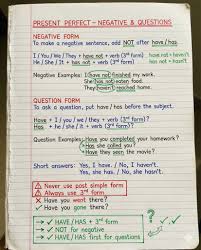 PRESENT PERFECT – NEGATIVE & QUESTIONS
NEGATIVE FORM
To make a negative sentence, add NOT after have / has.
I / You / We / They + have not + verb (3rd form) haven't
He / She / It + has not + verb (3rd form) hasn't
Negative Examples: I have not finished my work.
She has not eaten food.
They haven't reached home.
QUESTION FORM
To ask a question, put have / has before the subject.
Have + I / you / we / they + verb (3rd form)?
Has + he / she / it + verb (3rd form)?
Question Examples: Have you completed your homework?
Has she called you?
Have they seen the movie?
Short answers: Yes, I have. / No, I haven't.
Yes, she has. / No, she hasn't.
Never use past simple form
Always use 3rd form
Have you went there?
Have you gone there?
HAVE / HAS + 3rd form
NOT for negative
HAVE / HAS first for questions